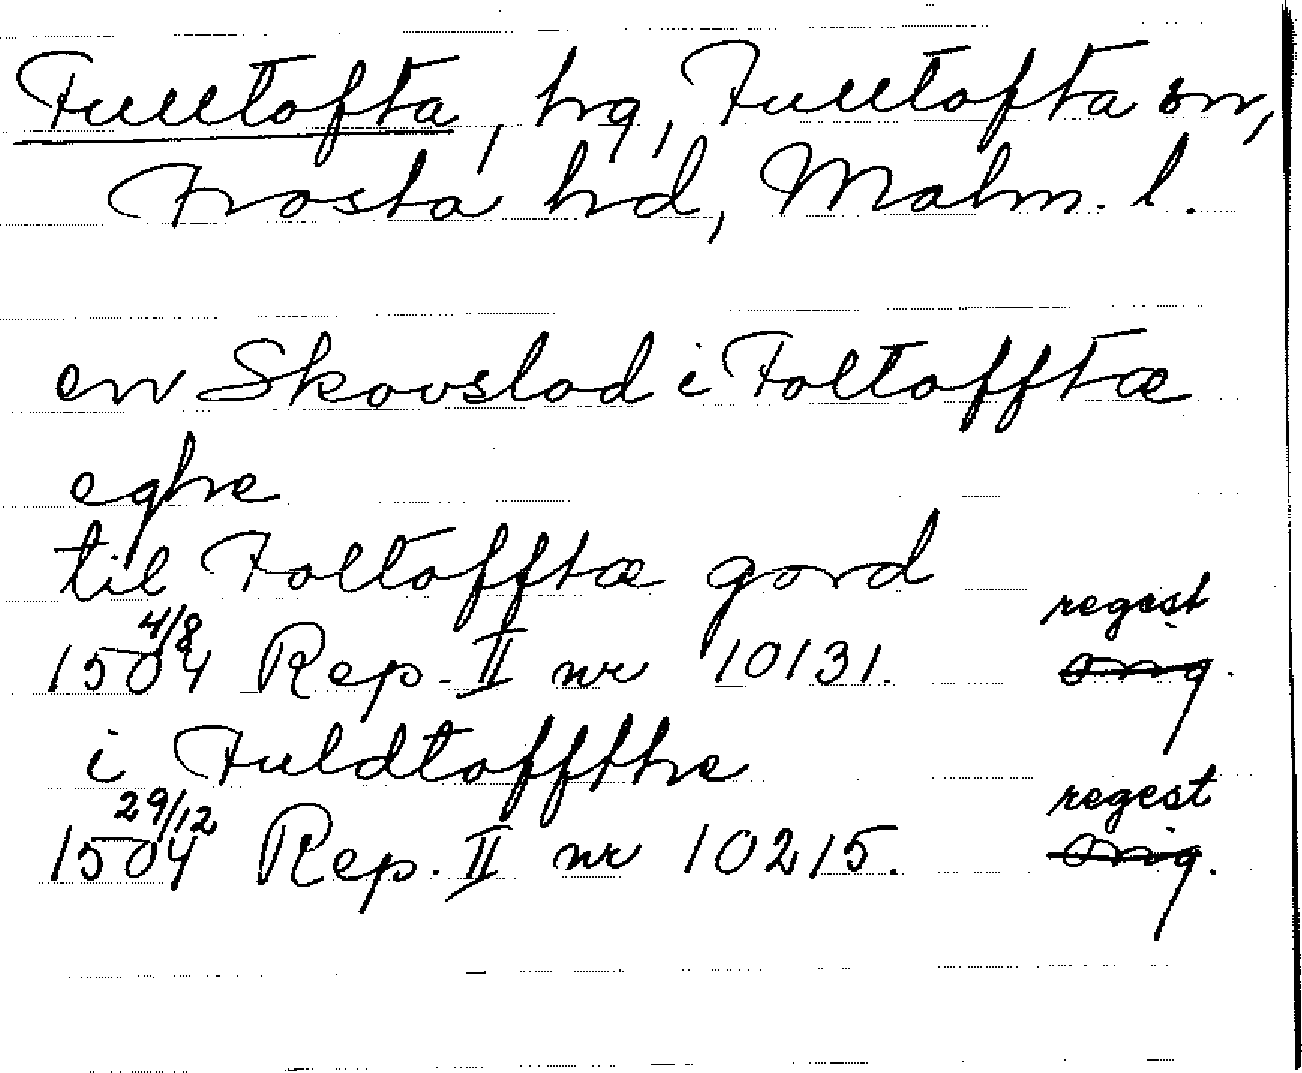 Fulltofta, hg, Fulltofta sn,
Frosta hd, Malm. l.
en Skovslod i Foltofftæ
eghe
til Foltofftæ gord
4/8 regest
1504 Rep. II nr 10131. orig.
i Fuldtoffthe
29/12 regest
1504 Rep. II nr 10215. orig.